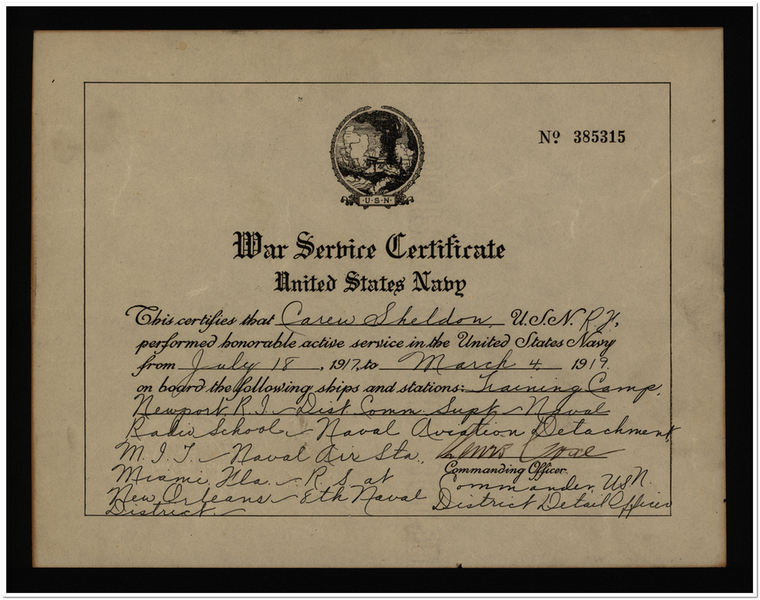 Nº 385315
U·S·N·
War Service Certificate
United States Navy
This certifies that Carew Sheldon U.S.N.R.F.,
performed honorable active service in the United States Navy
from July 18, 1917, to March 4 1919.
on board the following ships and stations: Training Camp,
Newport, R.I. – Dist. Comm. Supt. – Naval
Radio School – Naval Aviation Detachment
M.I.T. – Naval Air Sta.,
Commanding Officer.
Miami, Fla. – R.S. at
Commander, USN.
New Orleans – 8th Naval
District Detail Officer
District. –